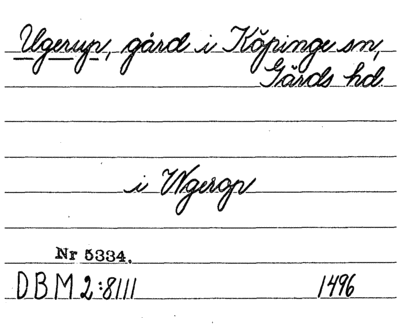 Ugerup, gård i Köpinge sn,
Gärds hd.
i Wgerop
Nr 5334.
DBM 2:8111 1496